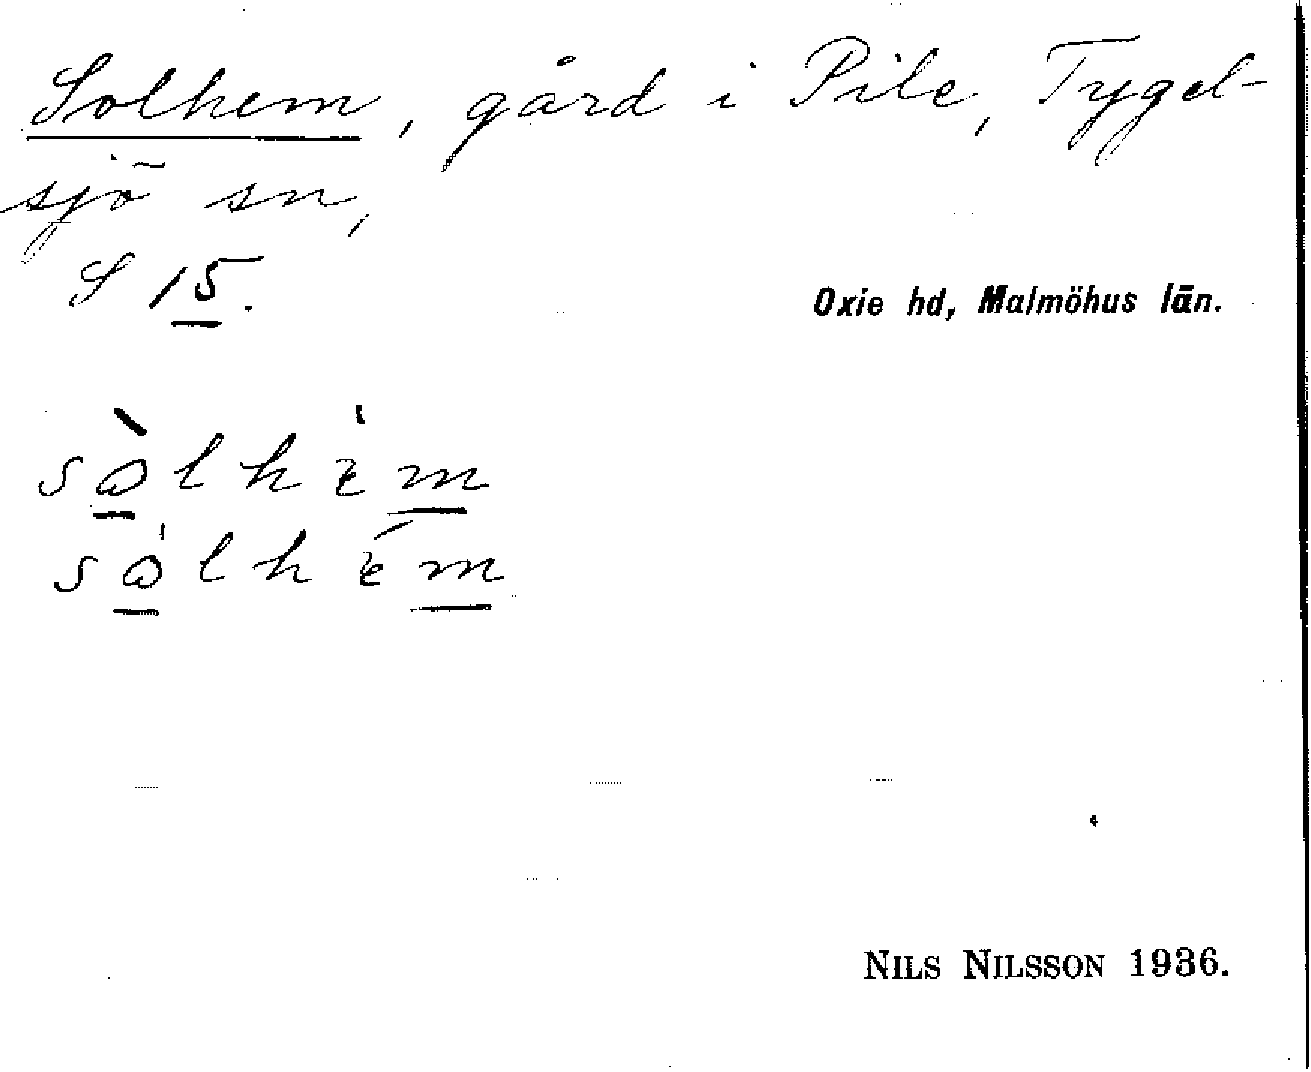 Solhem, gård i Pile, Tygel-
sjö sn,
S 15.
Oxie hd, Malmöhus län.
NILS NILSSON 1936.